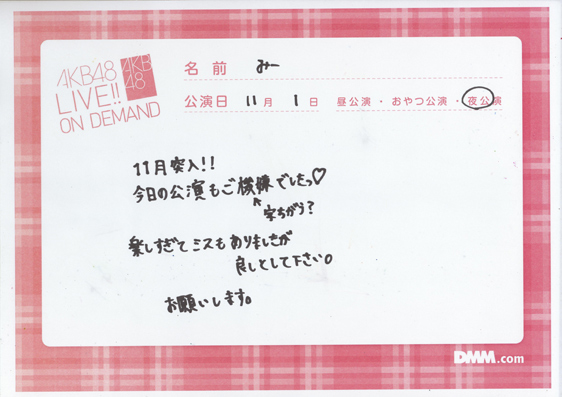 AKB48
LIVE!!
ON DEMAND
AKB
48
名前 みー
公演日 11月 1日 昼公演・おやつ公演・夜公演
11月突入!!
今日の公演もご機練でしたっ♡
字ちがう?
楽しすぎてミスもありましたが
良しとして下さい。
お願いします。
DMM.com